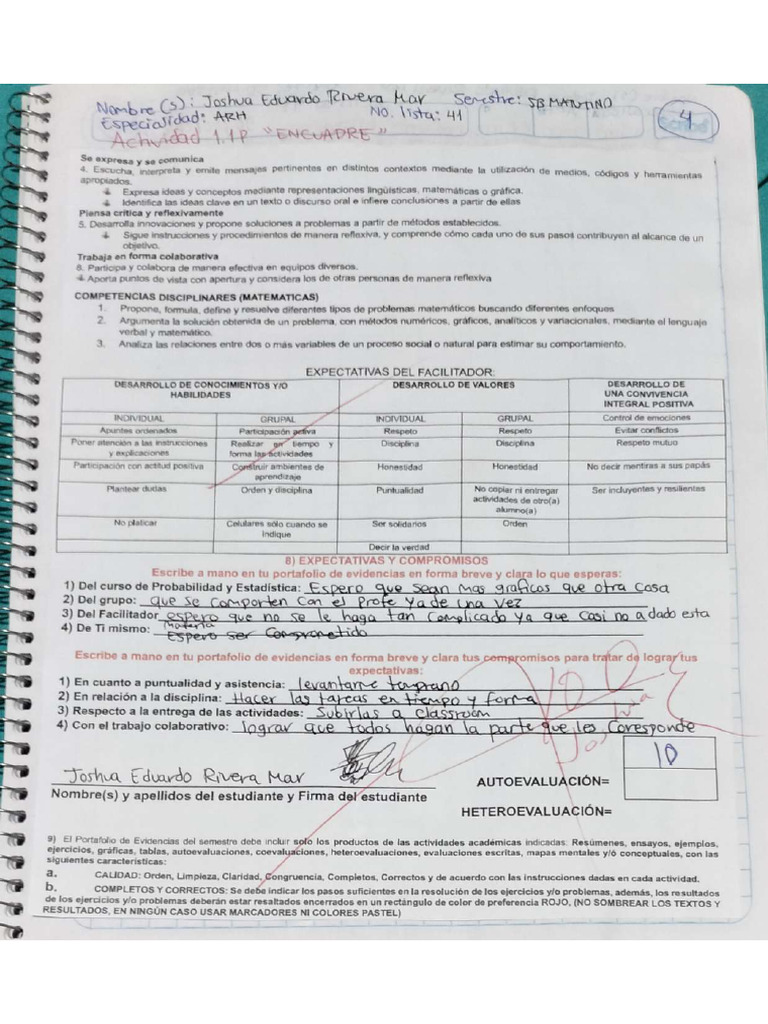 Nombre(s): Joshua Eduardo Rivera Mar Semestre: 5B MATUTINO
Especialidad: ARH No. lista: 41
4
Actividad 1.1P "ENCUADRE"
Se expresa y se comunica
4. Escucha, interpreta y emite mensajes pertinentes en distintos contextos mediante la utilización de medios, códigos y herramientas
apropiados.
Expresa ideas y conceptos mediante representaciones lingüísticas, matemáticas o gráfica.
Identifica las ideas clave en un texto o discurso oral e infiere conclusiones a partir de ellas
Piensa crítica y reflexivamente
5. Desarrolla innovaciones y propone soluciones a problemas a partir de métodos establecidos.
Sigue instrucciones y procedimientos de manera reflexiva, y comprende cómo cada uno de sus pasos contribuyen al alcance de un
objetivo.
Trabaja en forma colaborativa
8. Participa y colabora de manera efectiva en equipos diversos.
Aporta puntos de vista con apertura y considera los de otras personas de manera reflexiva
COMPETENCIAS DISCIPLINARES (MATEMATICAS)
1. Propone, formula, define y resuelve diferentes tipos de problemas matemáticos buscando diferentes enfoques
2. Argumenta la solución obtenida de un problema, con métodos numéricos, gráficos, analíticos y variacionales, mediante el lenguaje
verbal y matemático.
3. Analiza las relaciones entre dos o más variables de un proceso social o natural para estimar su comportamiento.
EXPECTATIVAS DEL FACILITADOR:
DESARROLLO DE CONOCIMIENTOS Y/O HABILIDADES DESARROLLO DE VALORES DESARROLLO DE UNA CONVIVENCIA INTEGRAL POSITIVA
INDIVIDUAL GRUPAL INDIVIDUAL GRUPAL Control de emociones
Apuntes ordenados Participación activa Respeto Respeto Evitar conflictos
Poner atención a las instrucciones y explicaciones Realizar en tiempo y forma las actividades Disciplina Disciplina Respeto mutuo
Participación con actitud positiva Construir ambientes de aprendizaje Honestidad Honestidad No decir mentiras a sus papás
Plantear dudas Orden y disciplina Puntualidad No copiar ni entregar actividades de otro(a) alumno(a) Ser incluyentes y resilientes
No platicar Celulares sólo cuando se indique Ser solidarios Orden
Decir la verdad
8) EXPECTATIVAS Y COMPROMISOS
Escribe a mano en tu portafolio de evidencias en forma breve y clara lo que esperas:
1) Del curso de Probabilidad y Estadística: Espero que sean mas graficos que otra cosa
2) Del grupo: que se comporten con el profe ya de una vez
3) Del Facilitador espero que no se le haga tan complicado ya que casi no a dado esta
materia
4) De Ti mismo: Espero ser comprometido
Escribe a mano en tu portafolio de evidencias en forma breve y clara tus compromisos para tratar de lograr tus
expectativas:
1) En cuanto a puntualidad y asistencia: levantarme temprano
2) En relación a la disciplina: Hacer las tareas en tiempo y forma
3) Respecto a la entrega de las actividades: Subirlas a classroom
4) Con el trabajo colaborativo: lograr que todos hagan la parte que les corresponde
Joshua Eduardo Rivera Mar
Nombre(s) y apellidos del estudiante y Firma del estudiante
AUTOEVALUACIÓN= 10
HETEROEVALUACIÓN=
9) El Portafolio de Evidencias del semestre debe incluir solo los productos de las actividades académicas indicadas: Resúmenes, ensayos, ejemplos,
ejercicios, gráficas, tablas, autoevaluaciones, coevaluaciones, heteroevaluaciones, evaluaciones escritas, mapas mentales y/ó conceptuales, con las
siguientes características:
a. CALIDAD: Orden, Limpieza, Claridad, Congruencia, Completos, Correctos y de acuerdo con las instrucciones dadas en cada actividad.
b. COMPLETOS Y CORRECTOS: Se debe indicar los pasos suficientes en la resolución de los ejercicios y/o problemas, además, los resultados
de los ejercicios y/o problemas deberán estar resaltados encerrados en un rectángulo de color de preferencia ROJO, (NO SOMBREAR LOS TEXTOS Y
RESULTADOS, EN NINGÚN CASO USAR MARCADORES NI COLORES PASTEL)